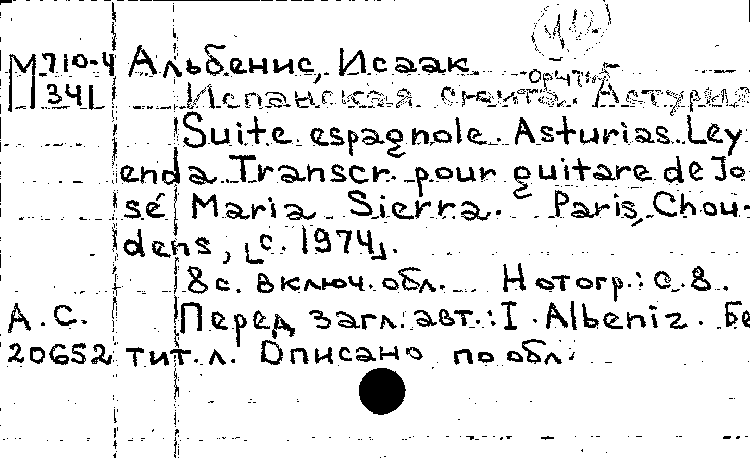 М710-4 Альбенис, Исаак
341 Испанская сюита. Астурия
ор47№5
Suite espagnole. Asturias Ley
enda Transcr. pour guitare de Jo
sé Maria Sierra. Paris, Chou-
dens, [c. 1974].
8 с. включ. обл. Нотогр.: с. 8.
А.С. Перед загл. авт.: I. Albeniz. Бе
20652 тит. л. Описано по обл.